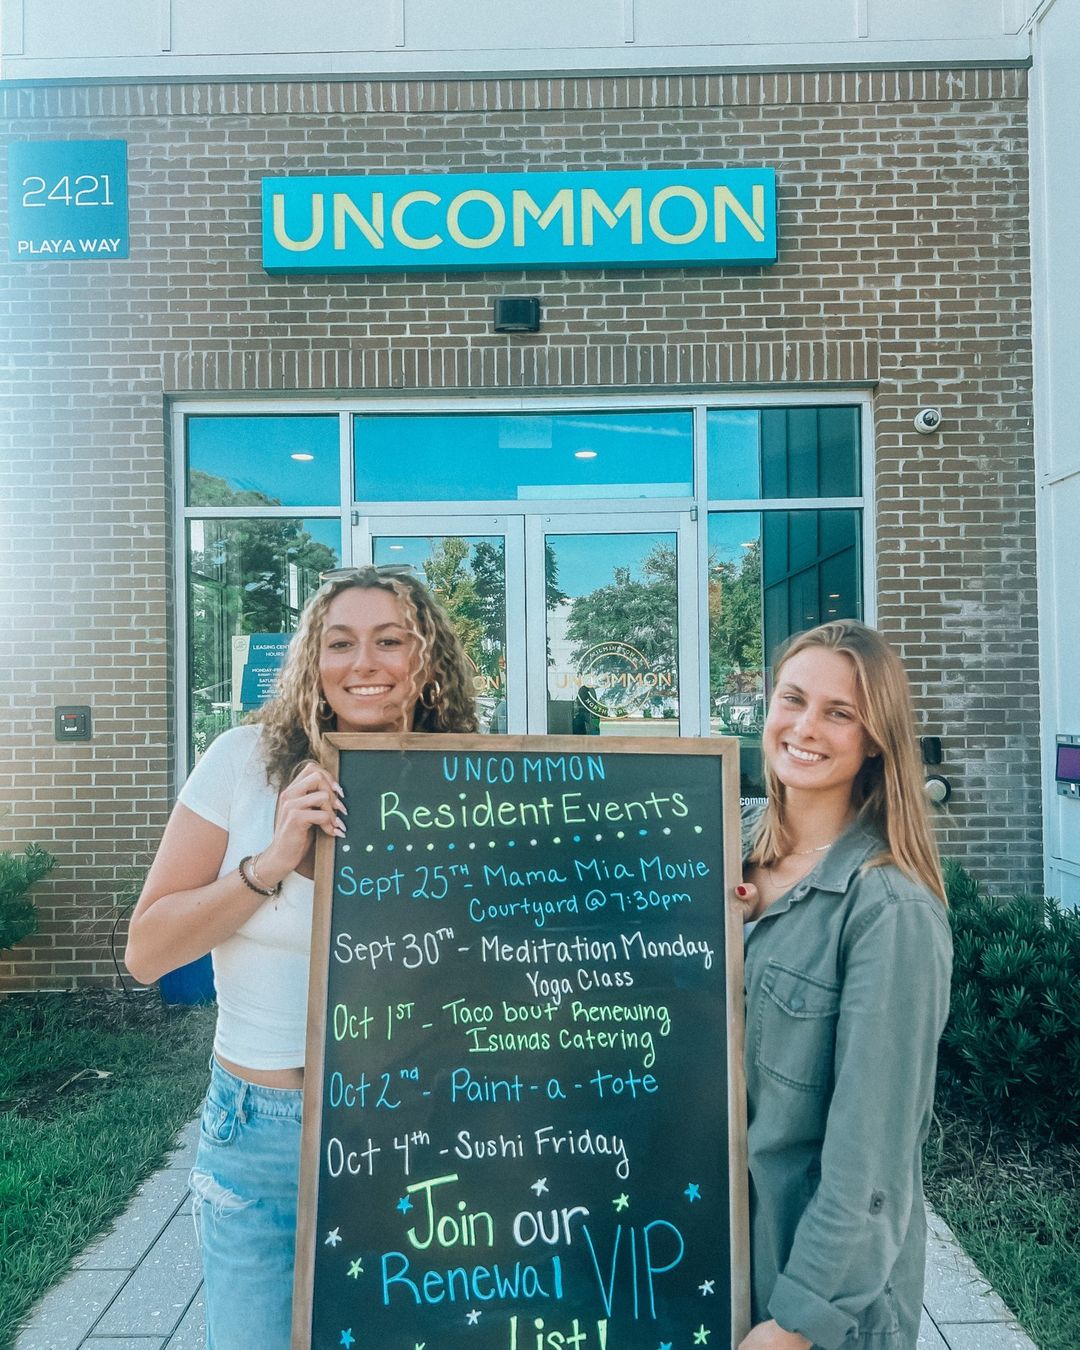 2421
PLAYA WAY
UNCOMMON
LEASING CENTER
HOURS
WILMINGTON
UNCOMMON
UNCOMMON
Resident Events
Sept 25TH - Mama Mia Movie
Courtyard @ 7:30pm
Sept 30TH - Meditation Monday
Yoga Class
Oct 1ST - Taco bout Renewing
Islands Catering
Oct 2nd - Paint-a-tote
Oct 4th - Sushi Friday
Join our
Renewal VIP
List!